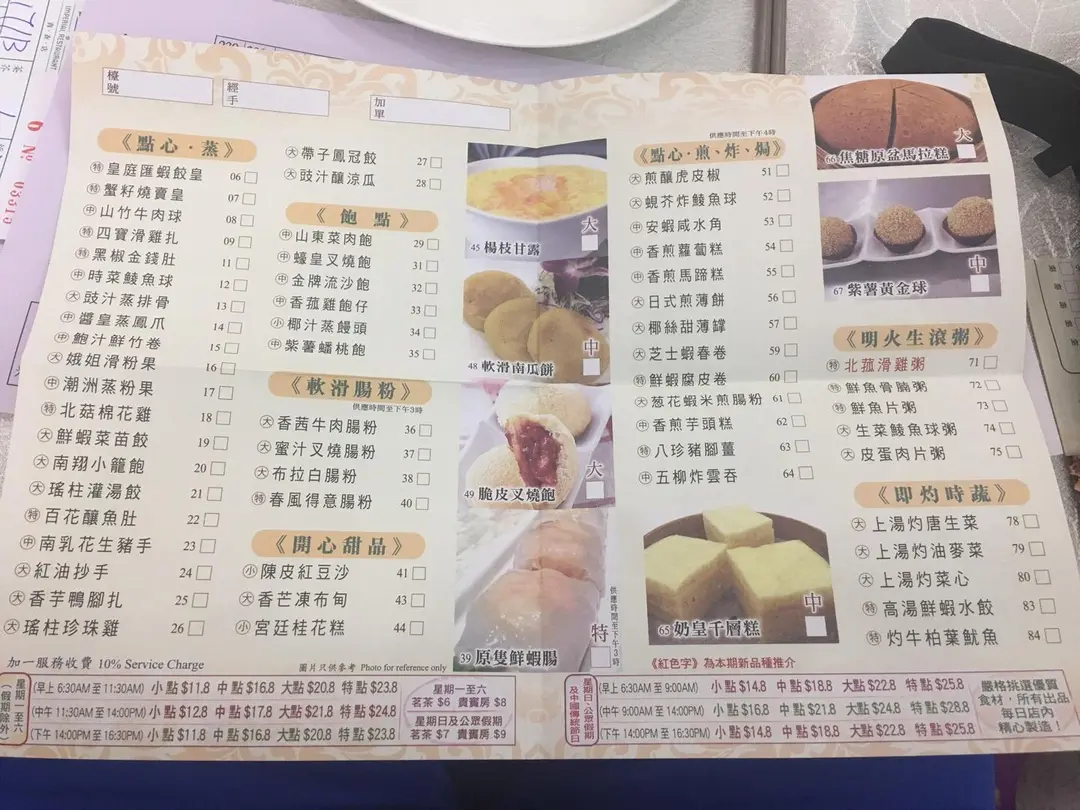 IMPERIAL RESTAURANT
Nº 03315
檯號
經手
加單
《點心·蒸》
特 皇庭匯蝦餃皇 06
特 蟹籽燒賣皇 07
中 山竹牛肉球 08
特 四寶滑雞扎 09
特 黑椒金錢肚 11
中 時菜鯪魚球 12
大 豉汁蒸排骨 13
中 醬皇蒸鳳爪 14
中 鮑汁鮮竹卷 15
大 娥姐滑粉果 16
中 潮洲蒸粉果 17
特 北菇棉花雞 18
大 鮮蝦菜苗餃 19
大 南翔小籠飽 20
大 瑤柱灌湯餃 21
特 百花釀魚肚 22
中 南乳花生豬手 23
大 紅油抄手 24
大 香芋鴨腳扎 25
大 瑤柱珍珠雞 26
大 帶子鳳冠餃 27
大 豉汁釀涼瓜 28
《飽點》
中 山東菜肉飽 29
中 蠔皇叉燒飽 31
中 金牌流沙飽 32
中 香菰雞飽仔 33
小 椰汁蒸饅頭 34
中 紫薯蟠桃飽 35
《軟滑腸粉》
供應時間至下午3時
大 香茜牛肉腸粉 36
大 蜜汁叉燒腸粉 37
大 布拉白腸粉 38
特 春風得意腸粉 40
《開心甜品》
小 陳皮紅豆沙 41
大 香芒凍布甸 43
小 宮廷桂花糕 44
45 楊枝甘露 大
48 軟滑南瓜餅 中
49 脆皮叉燒飽 大
39 原隻鮮蝦腸 特
供應時間至下午3時
供應時間至下午4時
《點心·煎、炸、焗》
大 煎釀虎皮椒 51
大 蜆芥炸鯪魚球 52
中 安蝦咸水角 53
中 香煎蘿蔔糕 54
中 香煎馬蹄糕 55
大 日式煎薄餅 56
大 椰絲甜薄罉 57
大 芝士蝦春卷 59
特 鮮蝦腐皮卷 60
大 葱花蝦米煎腸粉 61
中 香煎芋頭糕 62
特 八珍豬腳薑 63
中 五柳炸雲吞 64
65 奶皇千層糕 中
66 焦糖原盆馬拉糕 大
67 紫薯黃金球 中
《明火生滾粥》
特 北菰滑雞粥 71
特 鮮魚骨腩粥 72
特 鮮魚片粥 73
大 生菜鯪魚球粥 74
大 皮蛋肉片粥 75
《即灼時蔬》
大 上湯灼唐生菜 78
大 上湯灼油麥菜 79
大 上湯灼菜心 80
特 高湯鮮蝦水餃 83
特 灼牛柏葉魷魚 84
加一服務收費 10% Service Charge
圖片只供參考 Photo for reference only
《紅色字》為本期新品種推介
星期一至六（假期除外）
(早上 6:30AM 至 11:30AM) 小點 $11.8 中點 $16.8 大點 $20.8 特點 $23.8
(中午 11:30AM 至 14:00PM) 小點 $12.8 中點 $17.8 大點 $21.8 特點 $24.8
(下午 14:00PM 至 16:30PM) 小點 $11.8 中點 $16.8 大點 $20.8 特點 $23.8
星期一至六
茗茶 $6 貴賓房 $8
星期日及公眾假期
茗茶 $7 貴賓房 $9
星期日、公眾假期及中國傳統節日
(早上 6:30AM 至 9:00AM) 小點 $14.8 中點 $18.8 大點 $22.8 特點 $25.8
(中午 9:00AM 至 14:00PM) 小點 $16.8 中點 $21.8 大點 $24.8 特點 $28.8
(下午 14:00PM 至 16:30PM) 小點 $14.8 中點 $18.8 大點 $22.8 特點 $25.8
嚴格挑選優質
食材，所有出品
每日店內
精心製造！